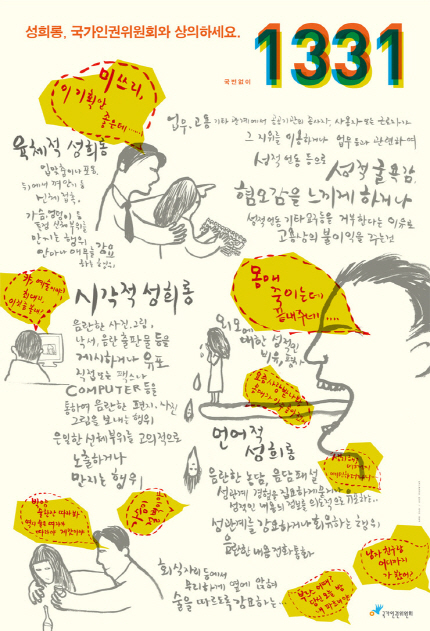 성희롱, 국가인권위원회와 상의하세요.
국번없이
1331
미쓰리,
이 기획안
좋은데......
업무, 고용 기타 관계에서 공공기관의 종사자, 사용자 또는 근로자가
그 지위를 이용하거나 업무 등과 관련하여
성적 언동 등으로 성적 굴욕감,
혐오감을 느끼게 하거나
성적 언동 기타 요구 등을 거부한다는 이유로
고용상의 불이익을 주는 것
육체적 성희롱
입맞춤이나 포옹,
뒤에서 껴안기 등
신체 접촉,
가슴, 엉덩이 등
특정 신체부위를
만지는 행위,
안마나 애무를 강요
하는 행위
몸매
죽이는데
끝내주네....
시각적 성희롱
음란한 사진, 그림,
낙서, 음란 출판물 등을
게시하거나 유포
직접 또는 팩스나
COMPUTER 등을
통하여 음란한 편지, 사진
그림을 보내는 행위
은밀한 신체부위를 고의적으로
노출하거나
만지는 행위
외모에
대한 성적인
비유, 평가
언어적
성희롱
음란한 농담, 음담패설
성적인 내용의 정보를 의도적으로 유포하는..
성관계를 강요하거나 회유하는 행위
음란한 내용 전화통화
회식자리 등에서
무리하게 옆에 앉혀
술을 따르도록 강요하는...
남자친구랑
어디까지
가 봤어?
국가인권위원회